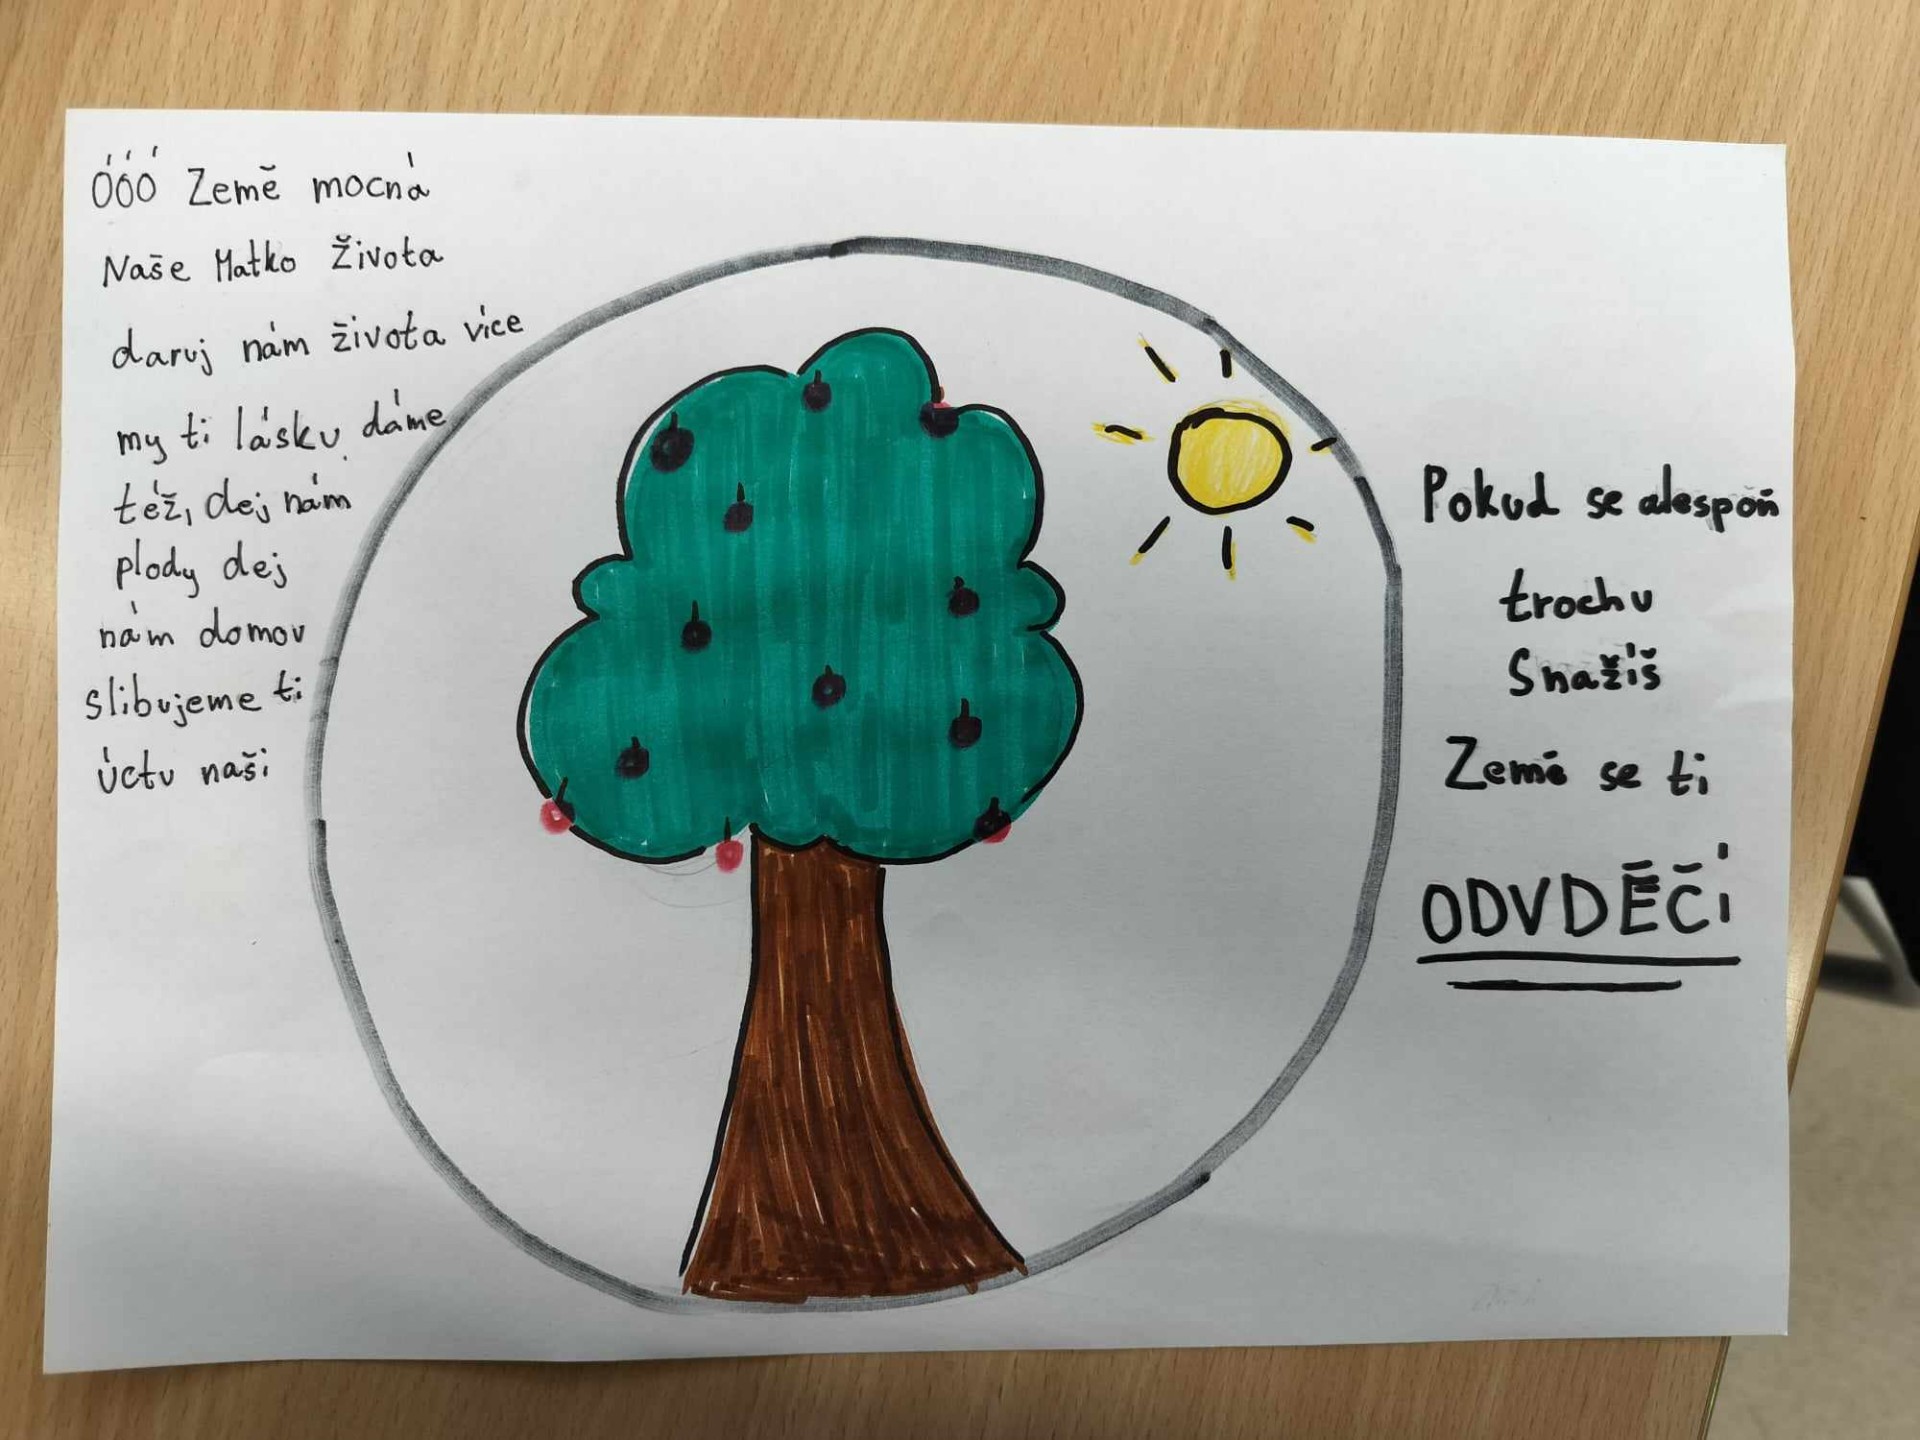 Óóó Země mocná
Naše Matko života
daruj nám života více
my ti lásku dáme
též, dej nám
plody dej
nám domov
slibujeme ti
úctu naši
Pokud se alespoň
trochu
Snažíš
Země se ti
ODVDĚČÍ